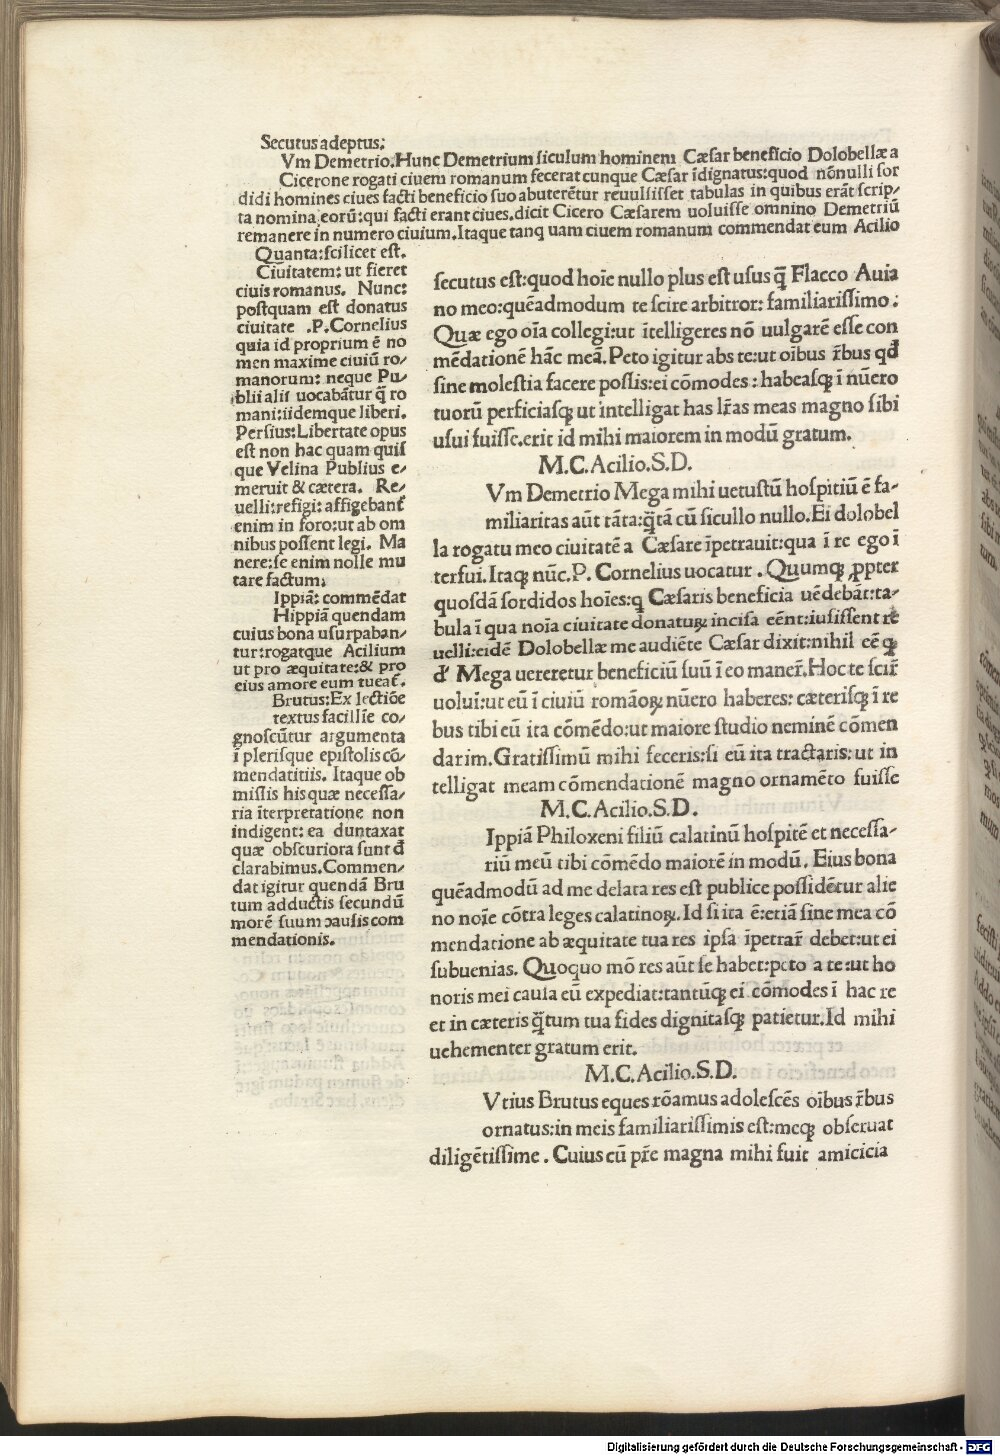 Secutus adeptus.
Vm Demetrio. Hunc Demetrium siculum hominem Cæsar beneficio Dolobellæ a
Cicerone rogati ciuem romanum fecerat cunque Cæsar īdignatus: quod nōnulli sor
didi homines ciues facti beneficio suo abuterētur reuulsisset tabulas in quibus erāt scrip/
ta nomina eorū: qui facti erant ciues. dicit Cicero Cæsarem uoluisse omnino Demetriū
remanere in numero ciuium. Itaque tanq uam ciuem romanum commendat eum Acilio
Quanta: scilicet est.
Ciuitatem: ut fieret
ciuis romanus. Nunc:
postquam est donatus
ciuitate .P. Cornelius
quia id proprium ē no
men maxime ciuiū ro/
manorum: neque Pu/
blii alii uocabātur q̄ ro
mani: iidemque liberi.
Persius: Libertate opus
est non hac quam quis
que Velina Publius e/
meruit & cætera. Re/
uelli: refigi: affigebant̄
enim in foro: ut ab om
nibus possent legi. Ma
nere: se enim nolle mu
tare factum.
Ippiā: commēdat
Hippiā quendam
cuius bona usurpaban/
tur: rogatque Acilium
ut pro æquitate: & pro
eius amore eum tueat̄.
Brutus: Ex lectiōe
textus facillīe co/
gnoscūtur argumenta
ī plerisque epistolis cō/
mendatitiis. Itaque ob
missis his quæ necessa/
ria īterpretatione non
indigent: ea duntaxat
quæ obscuriora sunt đ
clarabimus. Commen/
dat igitur quendā Bru
tum adductis secundū
morē suum ɔausis com
mendationis.
secutus est: quod hoīe nullo plus est usus q̄ Flacco Auia
no meo: quēadmodum te scire arbitror: familiarissimo.
Quæ ego oīa collegi: ut ītelligeres nō uulgarē esse con
mēdationē hāc meā. Peto igitur abs te: ut oībus r̄bus qđ
sine molestia facere possis: ei cōmodes: habeasqꝫ ī nūero
tuorū perficiasqꝫ ut intelligat has l̄ras meas magno sibi
usui fuisse. erit id mihi maiorem in modū gratum.
M. C. Acilio. S. D.
Vm Demetrio Mega mihi uetustū hospitiū ē fa-
miliaritas aūt tāta: q̄tā cū sicullo nullo. Ei dolobel
la rogatu meo ciuitatē a Cæsare īpetrauit: qua ī re ego ī
terfui. Itaqꝫ nūc. P. Cornelius uocatur. Quumqꝫ ꝓpter
quosdā sordidos hoīes: q Cæsaris beneficia uēdebāt: ta-
bula ī qua noīa ciuitate donatuꝝ incisa eēnt: iussissent re
uelli: eidē Dolobellæ me audiēte Cæsar dixit: nihil eē qꝫ
đ Mega uereretur beneficiū suū ī eo maner̄. Hoc te scir̄
uolui: ut eū ī ciuiū romāoꝝ nūero haberes: cæterisqꝫ ī re
bus tibi eū ita cōmēdo: ut maiore studio neminē cōmen
darim. Gratissimū mihi feceris: si eū ita tractaris: ut in
telligat meam cōmendationē magno ornamēto fuisse
M. C. Acilio. S. D.
Ippiā Philoxeni filiū calatinū hospitē et necessa-
riū meū tibi cōmēdo maiorē in modū. Eius bona
quēadmodū ad me delata res est publice possidētur alie
no noīe cōtra leges calatinoꝝ. Id si ita ē: etiā sine mea cō
mendatione ab æquitate tua res ipsa īpetrar̄ debet: ut ei
subuenias. Quoquo mō res aūt se habet: peto a te: ut ho
noris mei causa eū expediat: tantūqꝫ ei cōmodes ī hac re
et in cæteris q̄tum tua fides dignitasqꝫ patietur. Id mihi
uehementer gratum erit.
M. C. Acilio. S. D.
Vtius Brutus eques rōamus adolescēs oībus r̄bus
ornatus: in meis familiarissimis est: meqꝫ obseruat
diligētissime. Cuius cū pr̄e magna mihi fuit amicicia
Digitalisierung gefördert durch die Deutsche Forschungsgemeinschaft - DFG